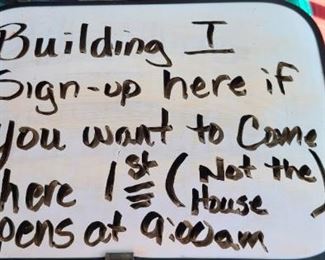 Building I
Sign-up here if
you want to Come
here 1st (Not the House)
pens at 9:00am